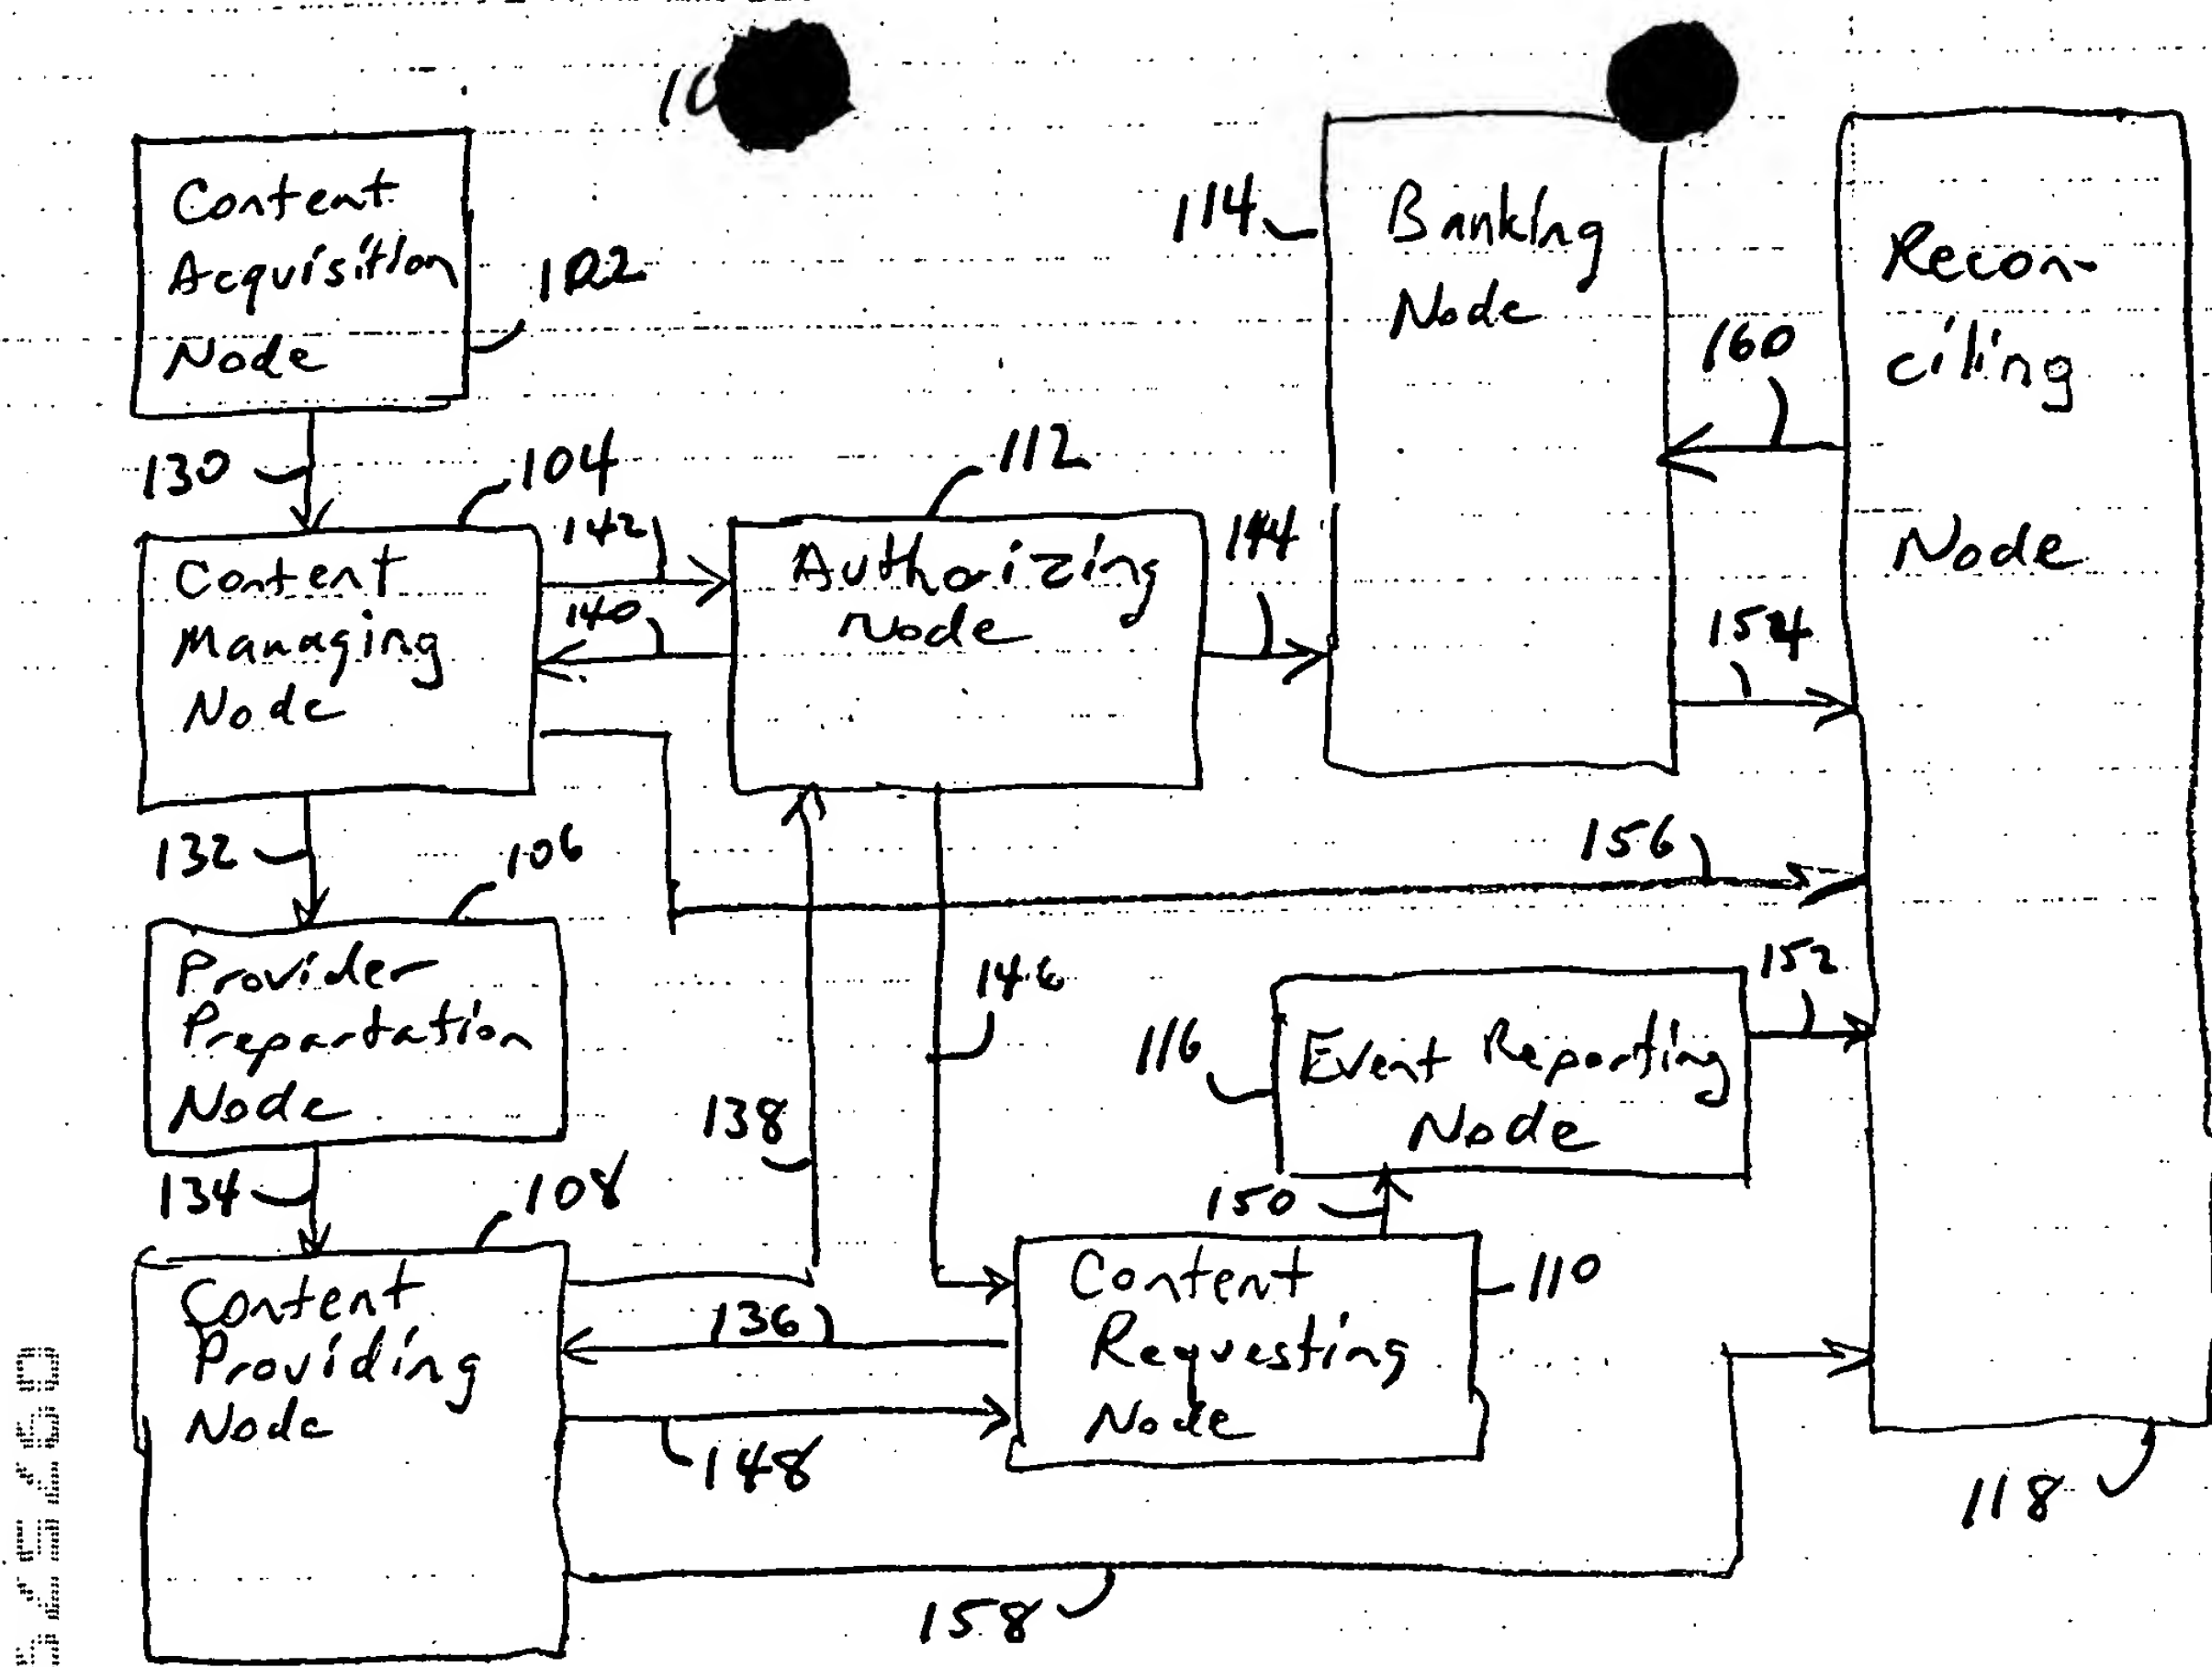 Content
Acquisition
Node
102
114
Banking
Node
Recon-
ciling
Node
160
130
104
112
142
144
Content
Managing
Node
140
Authorizing
Node
154
132
106
156
Provider
Prepartation
Node
146
152
116
Event Reporting
Node
138
134
108
150
Content
Providing
Node
136
Content
Requesting
Node
110
148
118
158